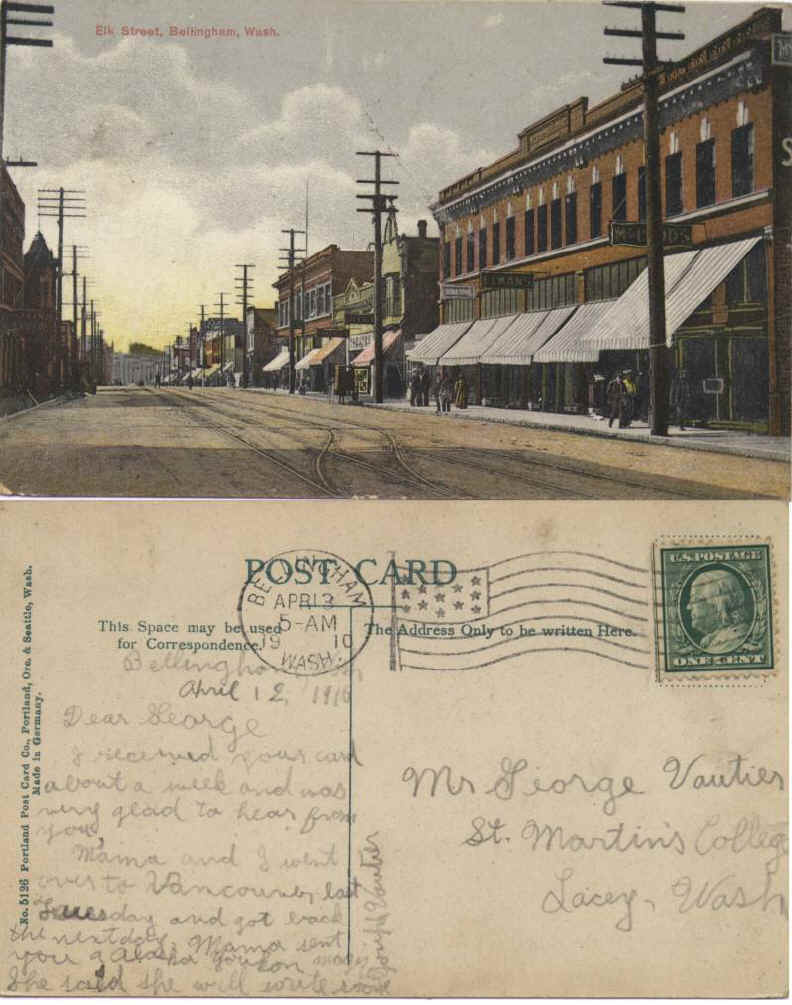 Elk Street, Bellingham, Wash.
POST CARD
This Space may be used
for Correspondence.
The Address Only to be written Here.
BELLINGHAM
APR 13
5-AM
19 10
WASH.
U.S. POSTAGE
ONE CENT
No. 5126 Portland Post Card Co., Portland, Ore. & Seattle, Wash.
Made in Germany.
Bellingham
April 12, 1910
Dear George
I received your card
about a week and was
very glad to hear from
you,
Mama and I went
over to Vancouver last
Tuesday and got back
the next day. Mama sent
you a Alaska Youkon
She said she will write
Joseph Vautier
Mr George Vautier
St. Martin's College
Lacey, Wash